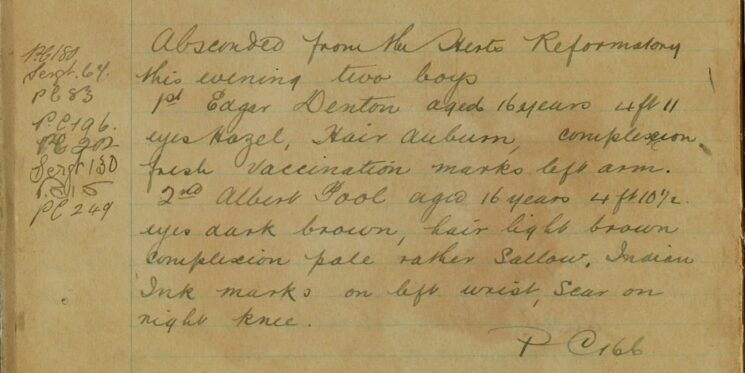 PC 180
Sergt. 64.
PC 83
P.C 196.
PC 202
Sergt 130
P.C 15
PC 249
Absconded from the Herts Reformatory
this evening two boys
1st Edgar Denton aged 16 years 4 ft 11
eyes Hazel, Hair auburn, complexion
fresh Vaccination marks left arm.
2nd Albert Pool aged 16 years 4 ft 10½.
eyes dark brown, hair light brown
complexion pale rather Sallow. Indian
Ink marks on left wrist, Scar on
right knee.
P C 166